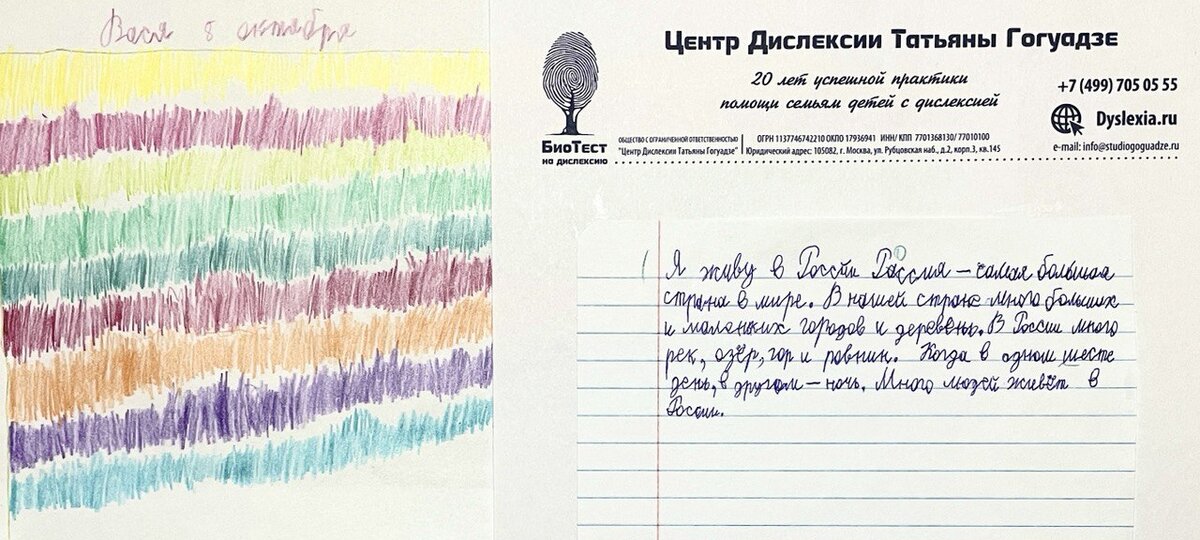 Вася 8 октября
Центр Дислексии Татьяны Гогуадзе
20 лет успешной практики
помощи семьям детей с дислексией
+7 (499) 705 05 55
Dyslexia.ru
e-mail: info@studiogoguadze.ru
БиоТест
на дислексию
ОБЩЕСТВО С ОГРАНИЧЕННОЙ ОТВЕТСТВЕННОСТЬЮ
"Центр Дислексии Татьяны Гогуадзе"
ОГРН 1137746742210 ОКПО 17936941 ИНН/ КПП 7701368130/ 77010100
Юридический адрес: 105082, г. Москва, ул. Рубцовская наб., д.2, корп.3, кв.145
Я живу в России Россия – самая большая
страна в мире. В нашей стране много больших
и маленьких городов и деревень. В России много
рек, озёр, гор и равнин. Когда в одном месте
день, в другом – ночь. Много людей живёт в
России.